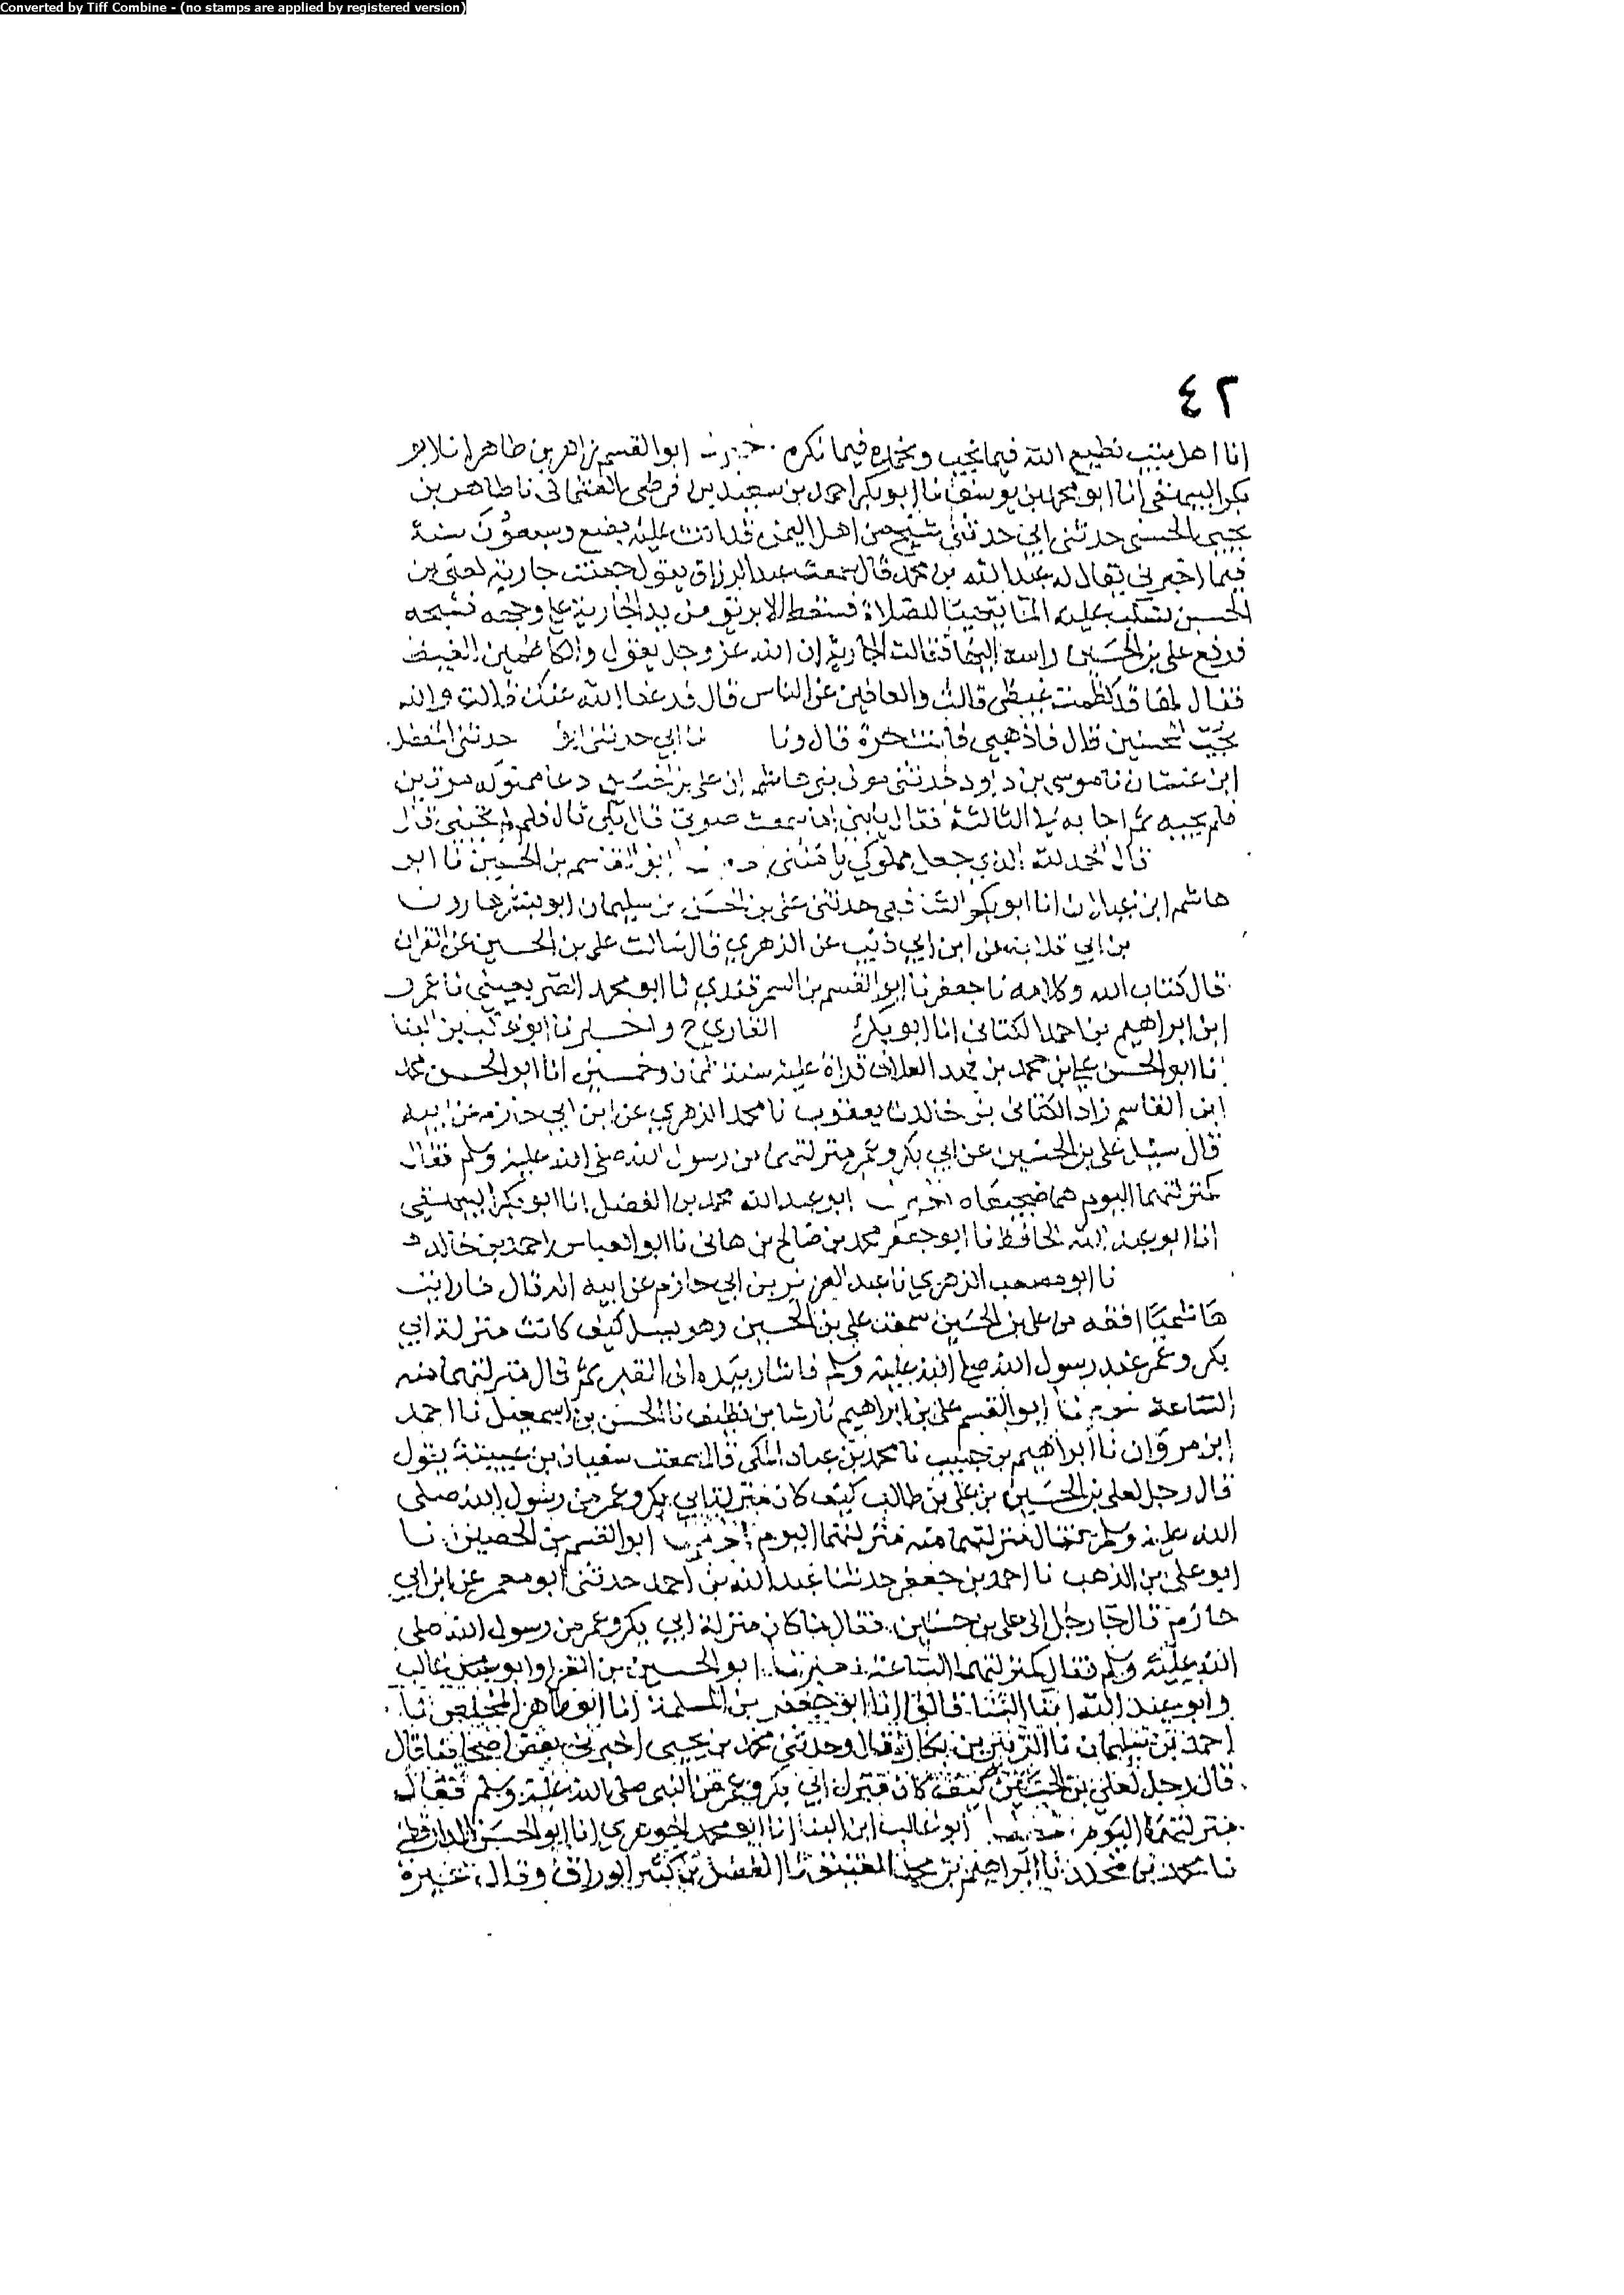 Converted by Tiff Combine - (no stamps are applied by registered version)
٤٢
انا اهل بيت نطيع الله فيما يحب ونحمده فيما نكره ابو القسم زاهر بن طاهر انا ابو
بكر البيهقي انا ابو محمد بن يوسف نا ابو بكر احمد بن سعيد بن فرضخ نا طاهر بن
يحيى الحسني حدثني ابي حدثني شيخ من اهل اليمن قد اتت عليه بضع وسبعون سنة
فيما اخبرني يقال له عبد الله بن محمد قال سمعت عبد الرزاق يقول جعلت جارية لعلي بن
الحسين تسكب عليه الماء يتهيا للصلاة فسقط الابريق من يد الجارية على وجهه فشجه
فرفع علي بن الحسين راسه اليها فقالت الجارية ان الله عز وجل يقول والكاظمين الغيظ
فقال لها قد كظمت غيظي قالت والعافين عن الناس قال قد عفا الله عنك قالت والله
يحب المحسنين قال فاذهبي فانت حرة قال ونا نا ابي حدثني ابو حدثني المفضل
ابن غسان نا موسى بن داود حدثني مولى بني هاشم ان علي بن الحسين دعا مملوكه مرتين
فلم يجبه ثم اجابه في الثالثة فقال يا بني اما سمعت صوتي قال بلى قال فلم لم تجبني قال
قال الحمد لله الذي جعل مملوكي يا منني ابو القاسم بن الحصين نا ابو
انا ابو بكر الشافعي حدثني علي بن الحسن بن سليمان ابو هارون
بن ابي عن ابن ابي ذئب عن الزهري قال سالت علي بن الحسين عن القران
قال كتاب الله وكلامه نا جعفر نا ابو القسم بن السمرقندي نا ابو محمد الصريفيني نا عمر
ابن ابراهيم بن احمد الكتاني انا ابو بكر القاري ح واخبرنا ابو غالب بن البنا
انا ابو الحسن علي بن محمد بن العلاف قراة عليه سنة ثمان وخمسين انا ابو الحسن محمد
ابن القاسم زاد الكتاني بن خالد نا يعقوب نا محمد الزهري عن ابن ابي حازم عن ابيه
قال سئل علي بن الحسين عن ابي بكر وعمر منزلتهما من رسول الله صلى الله عليه وسلم فقال
كمنزلتهما اليوم هما ضجيعاه ابو عبد الله محمد بن الفضل انا ابو بكر البيهقي
انا ابو عبد الله الحافظ نا ابو جعفر محمد بن صالح بن هاني نا ابو العباس احمد بن خالد
نا ابو مصعب الزهري نا عبد العزيز بن ابي حازم عن ابيه انه قال ما رايت
هاشميا افقه من علي بن الحسين سمعت علي بن الحسين وهو يسل كيف كانت منزلة ابي
بكر وعمر عند رسول الله صلى الله عليه وسلم فاشار بيده الى القبر ثم قال منزلتهما منه
الساعة ابو القسم علي بن ابراهيم نا رشا بن نظيف نا الحسن بن اسمعيل نا احمد
ابن مروان نا ابراهيم بن حبيب نا محمد بن عباد المكي قال سمعت سفيان بن عيينة يقول
قال رجل لعلي بن الحسين بن علي بن طالب كيف كان منزلة ابي بكر وعمر من رسول الله صلى
الله عليه وسلم فقال منزلتهما منه منزلتهما اليوم ابو القسم بن الحصين نا
ابو علي بن المذهب نا احمد بن جعفر حدثنا عبد الله بن احمد حدثني ابو معمر عن ابن ابي
حازم قال جا رجل الى علي بن حسين فقال ما كان منزلة ابي بكر وعمر من رسول الله صلى
الله عليه وسلم فقال كمنزلتهما الساعة ابو الحسين بن الفرا وابو غالب
وابو عبد الله ابنا البنا قالوا انا ابو جعفر بن المسلمة انا ابو طاهر المخلص نا
احمد بن سليمان نا الزبير بن بكار قال وحدثني محمد بن يحيى اخبرني بعض اصحابنا قال
قال رجل لعلي بن الحسين كيف كان منزل ابي بكر وعمر من النبي صلى الله عليه وسلم فقال
منزلتهما اليوم ابو غالب ابن البنا انا ابو محمد الجوهري انا ابو الحسن الدارقطني
نا محمد بن مخلد نا ابراهيم بن محمد العتيق نا الفضل بن الوراق وقال غيره